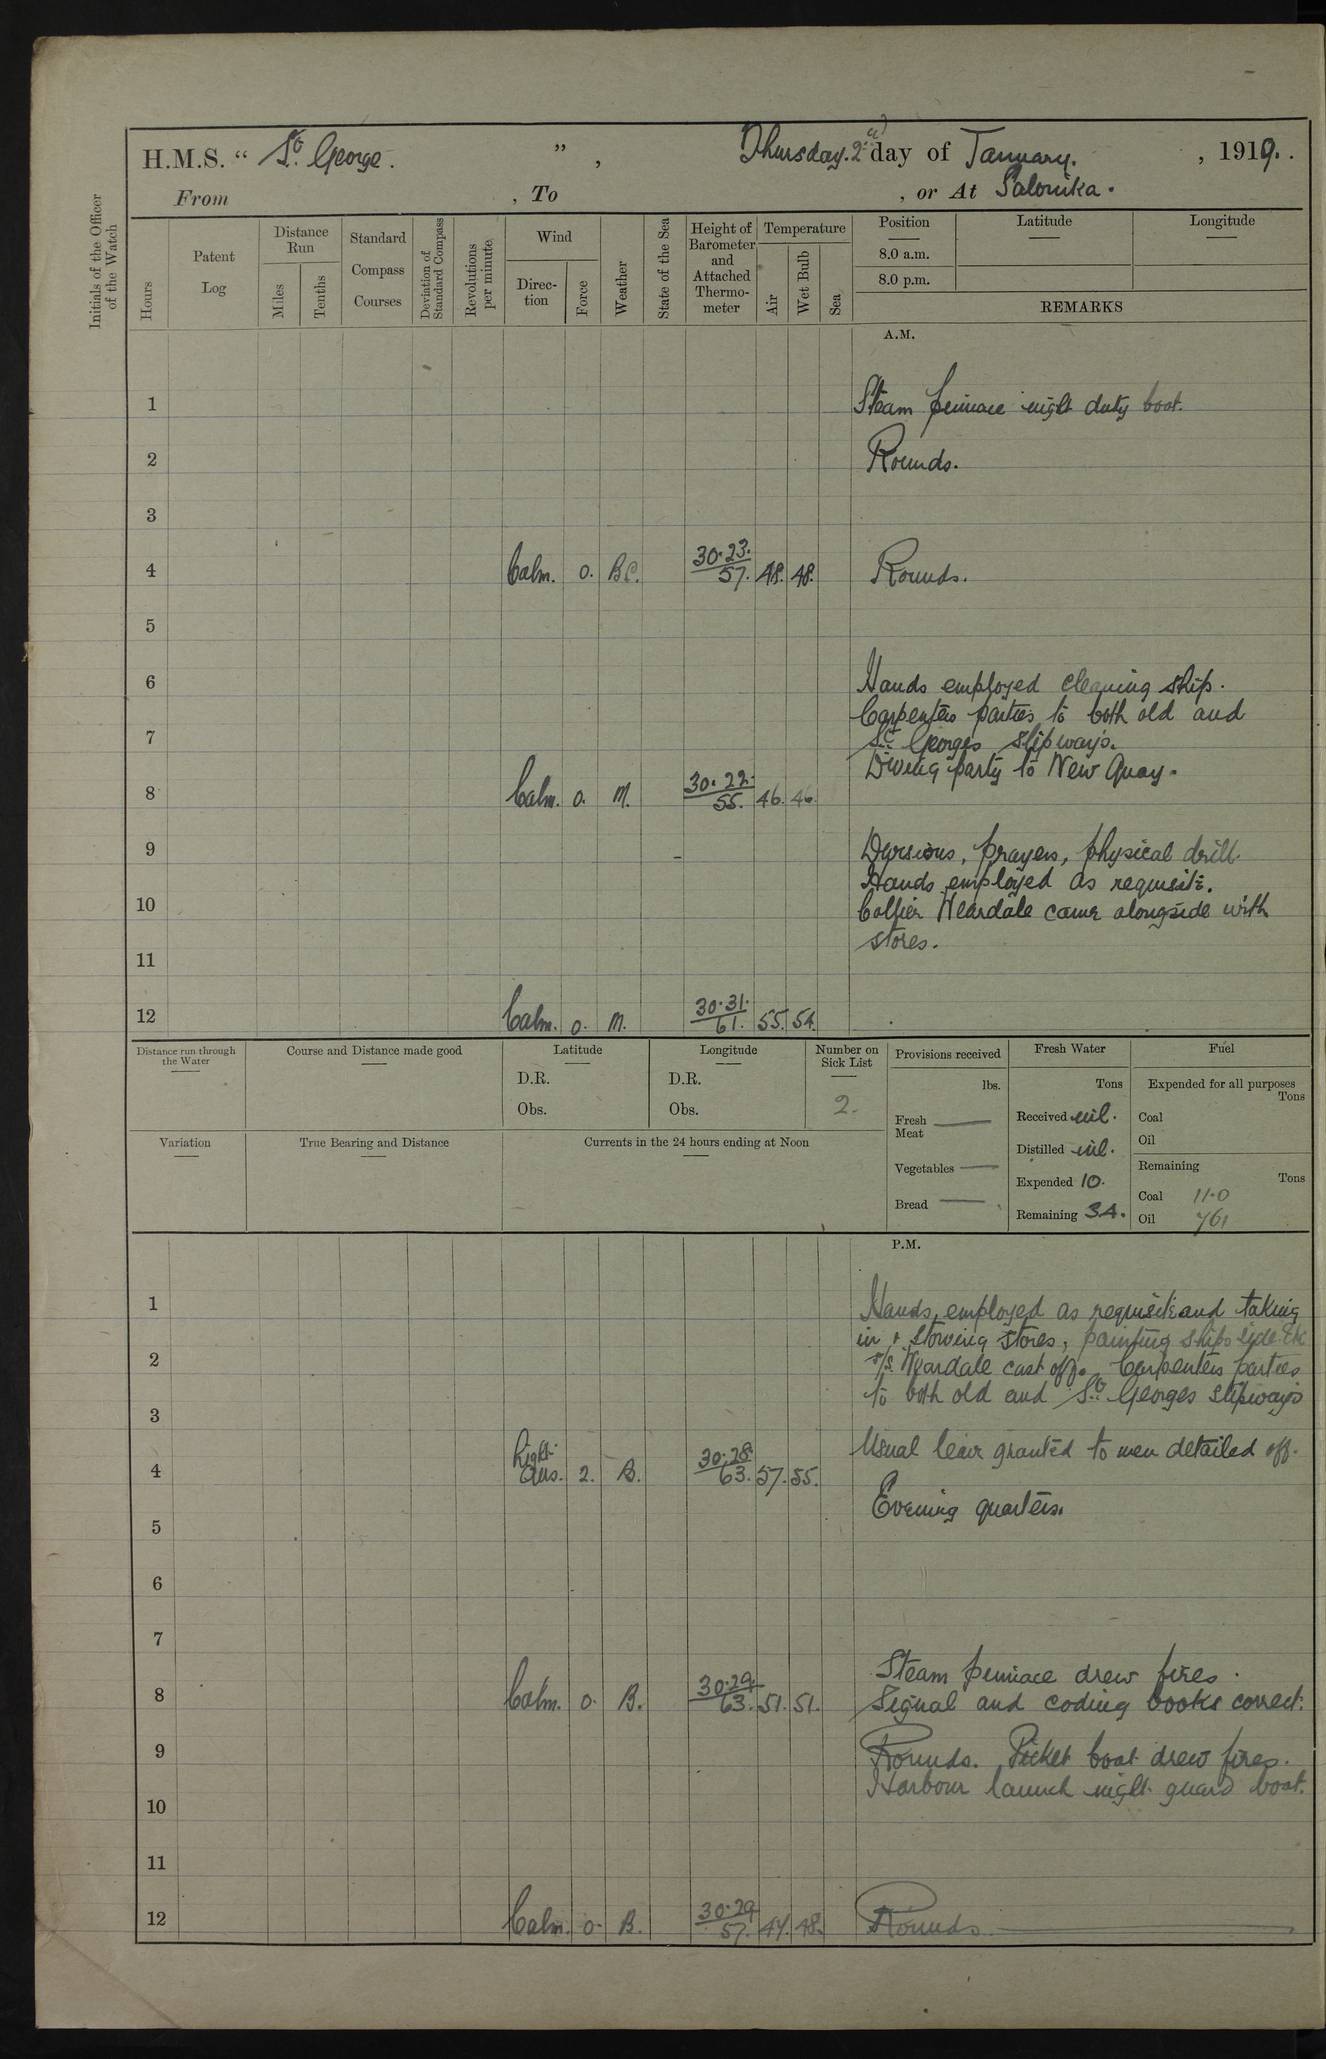 H.M.S. “ St. George. ” , Thursday. 2nd day of January. , 1919.
From , To , or At Salonika.
Initials of the Officer of the Watch
Hours
Patent Log
Distance Run
Miles
Tenths
Standard Compass Courses
Deviation of Standard Compass
Revolutions per minute
Wind
Direc-tion
Force
Weather
State of the Sea
Height of Barometer and Attached Thermo-meter
Temperature
Air
Wet Bulb
Sea
Position Latitude Longitude
8.0 a.m.
8.0 p.m.
REMARKS
A.M.
1 Steam pinnace night duty boat.
2 Rounds.
3
4 Calm. 0. B.C. 30.23. 57. 48. 48. Rounds.
5
6 Hands employed cleaning ship.
Carpenters parties to both old and
7 St. Georges slipways.
Diving party to New Quay.
8 Calm. 0. M. 30.22. 55. 46. 46
9 Divisions, prayers, physical drill.
Hands employed as requisite.
10 Collier Weardale came alongside with
stores.
11
12 Calm. 0. M. 30.31. 61. 55. 54.
Distance run through the Water
Course and Distance made good
Latitude
D.R.
Obs.
Longitude
D.R.
Obs.
Number on Sick List
2.
Provisions received
lbs.
Fresh Meat
Vegetables
Bread
Fresh Water
Tons
Received nil.
Distilled nil.
Expended 10.
Remaining 34.
Fuel
Expended for all purposes
Tons
Coal
Oil
Remaining
Tons
Coal 110
Oil 761
Variation
True Bearing and Distance
Currents in the 24 hours ending at Noon
P.M.
1 Hands employed as requisite and taking
in & stowing stores, painting ships side Etc
2 s/s. Weardale cast off. Carpenters parties
to both old and St. Georges slipways
3
Usual leave granted to men detailed off.
4 Light Airs. 2. B. 30.28. 63. 57. 55.
Evening quarters.
5
6
7
Steam pinnace drew fires.
8 Calm. 0. B. 30.29. 63. 51. 51. Signal and coding books correct.
9 Rounds. Picket boat drew fires.
Harbour launch night guard boat.
10
11
12 Calm. 0. B. 30.29 57. 47. 48. Rounds